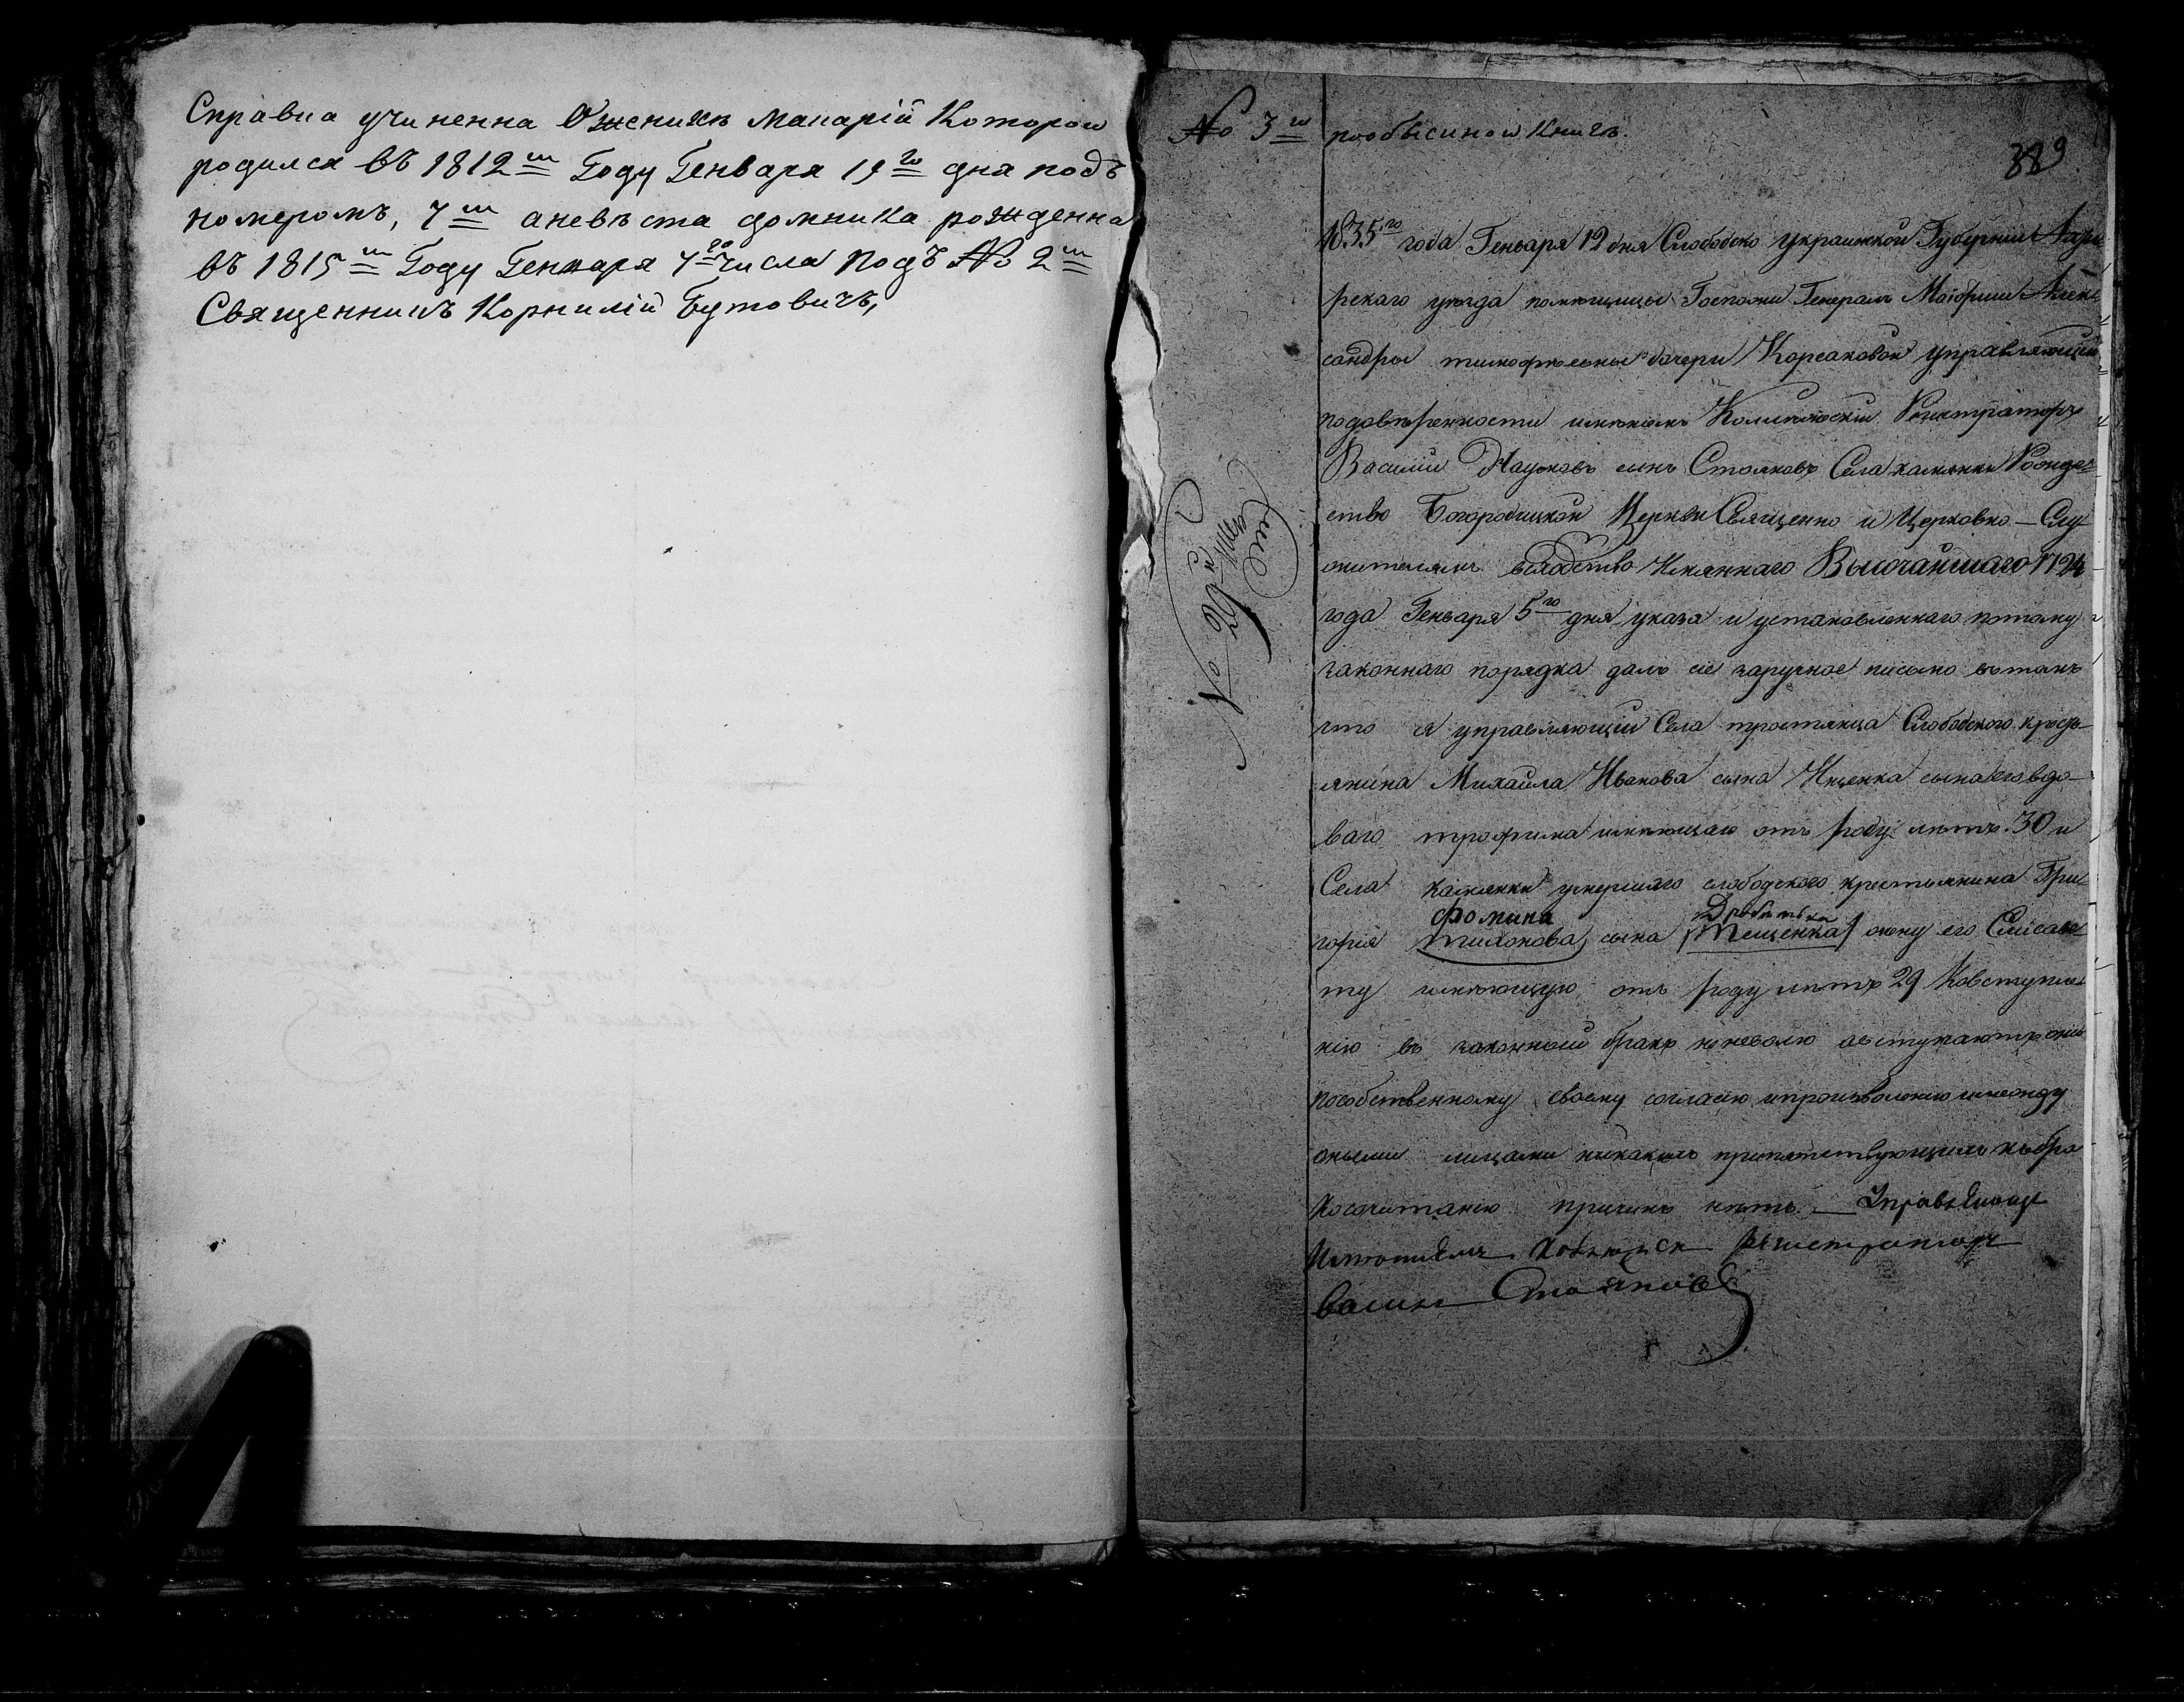 Справка учиненна Ожених Макарій Которой
родился въ 1812м Году Генваря 19го дня подъ
номеромъ, 7м аневѣста домника рожденна
въ 1815м Году Генваря 7го Числа подъ № 2м
Священникъ Корнилій Бутовичъ,
№ 3й пообысиной Книгѣ.
389
1835го года Генваря 12 дня Слободско украинской Губерніи Ахты
рскаго уѣзда помѣщицы Госпожи Генералъ Маіорши Алек
сандры тимофѣевны дочери Корсаковой управляющій
подовѣренности имѣніемъ Колижскій Регистраторъ
Василий Наумовъ сынъ Стояновъ Села каменки Рождес
тво Богородицкой Церкви Священно и Церковно-Слу
жителямъ вслѣдствіе Имяннаго Высочайшаго 1724
года Генваря 5го дня указа и установленнаго потому
законнаго порядка далъ сіе заручное письмо втомъ
что я управляющій Села тростянца Слободского кресть
янина Михайла Иванова сына Ищенка сына его вдо
ваго трофима имѣющаго отъ роду лѣтъ 30 и
Села каменки умершаго слободского крестьянина Гри
Фомина
горія тихонова сына Тещенка жену его Елисаве
ту имѣющую отъ роду лѣтъ 29 Ковступле
нію въ законный бракъ неневолю авступаютъ они
пособственному своему согласію ипроизволенію имежду
оными лицами никакихъ препятствующихъ къбра
косочитанію причинъ нѣтъ. — Управляющи
Имениемъ регистраторъ
Василий Стояновъ